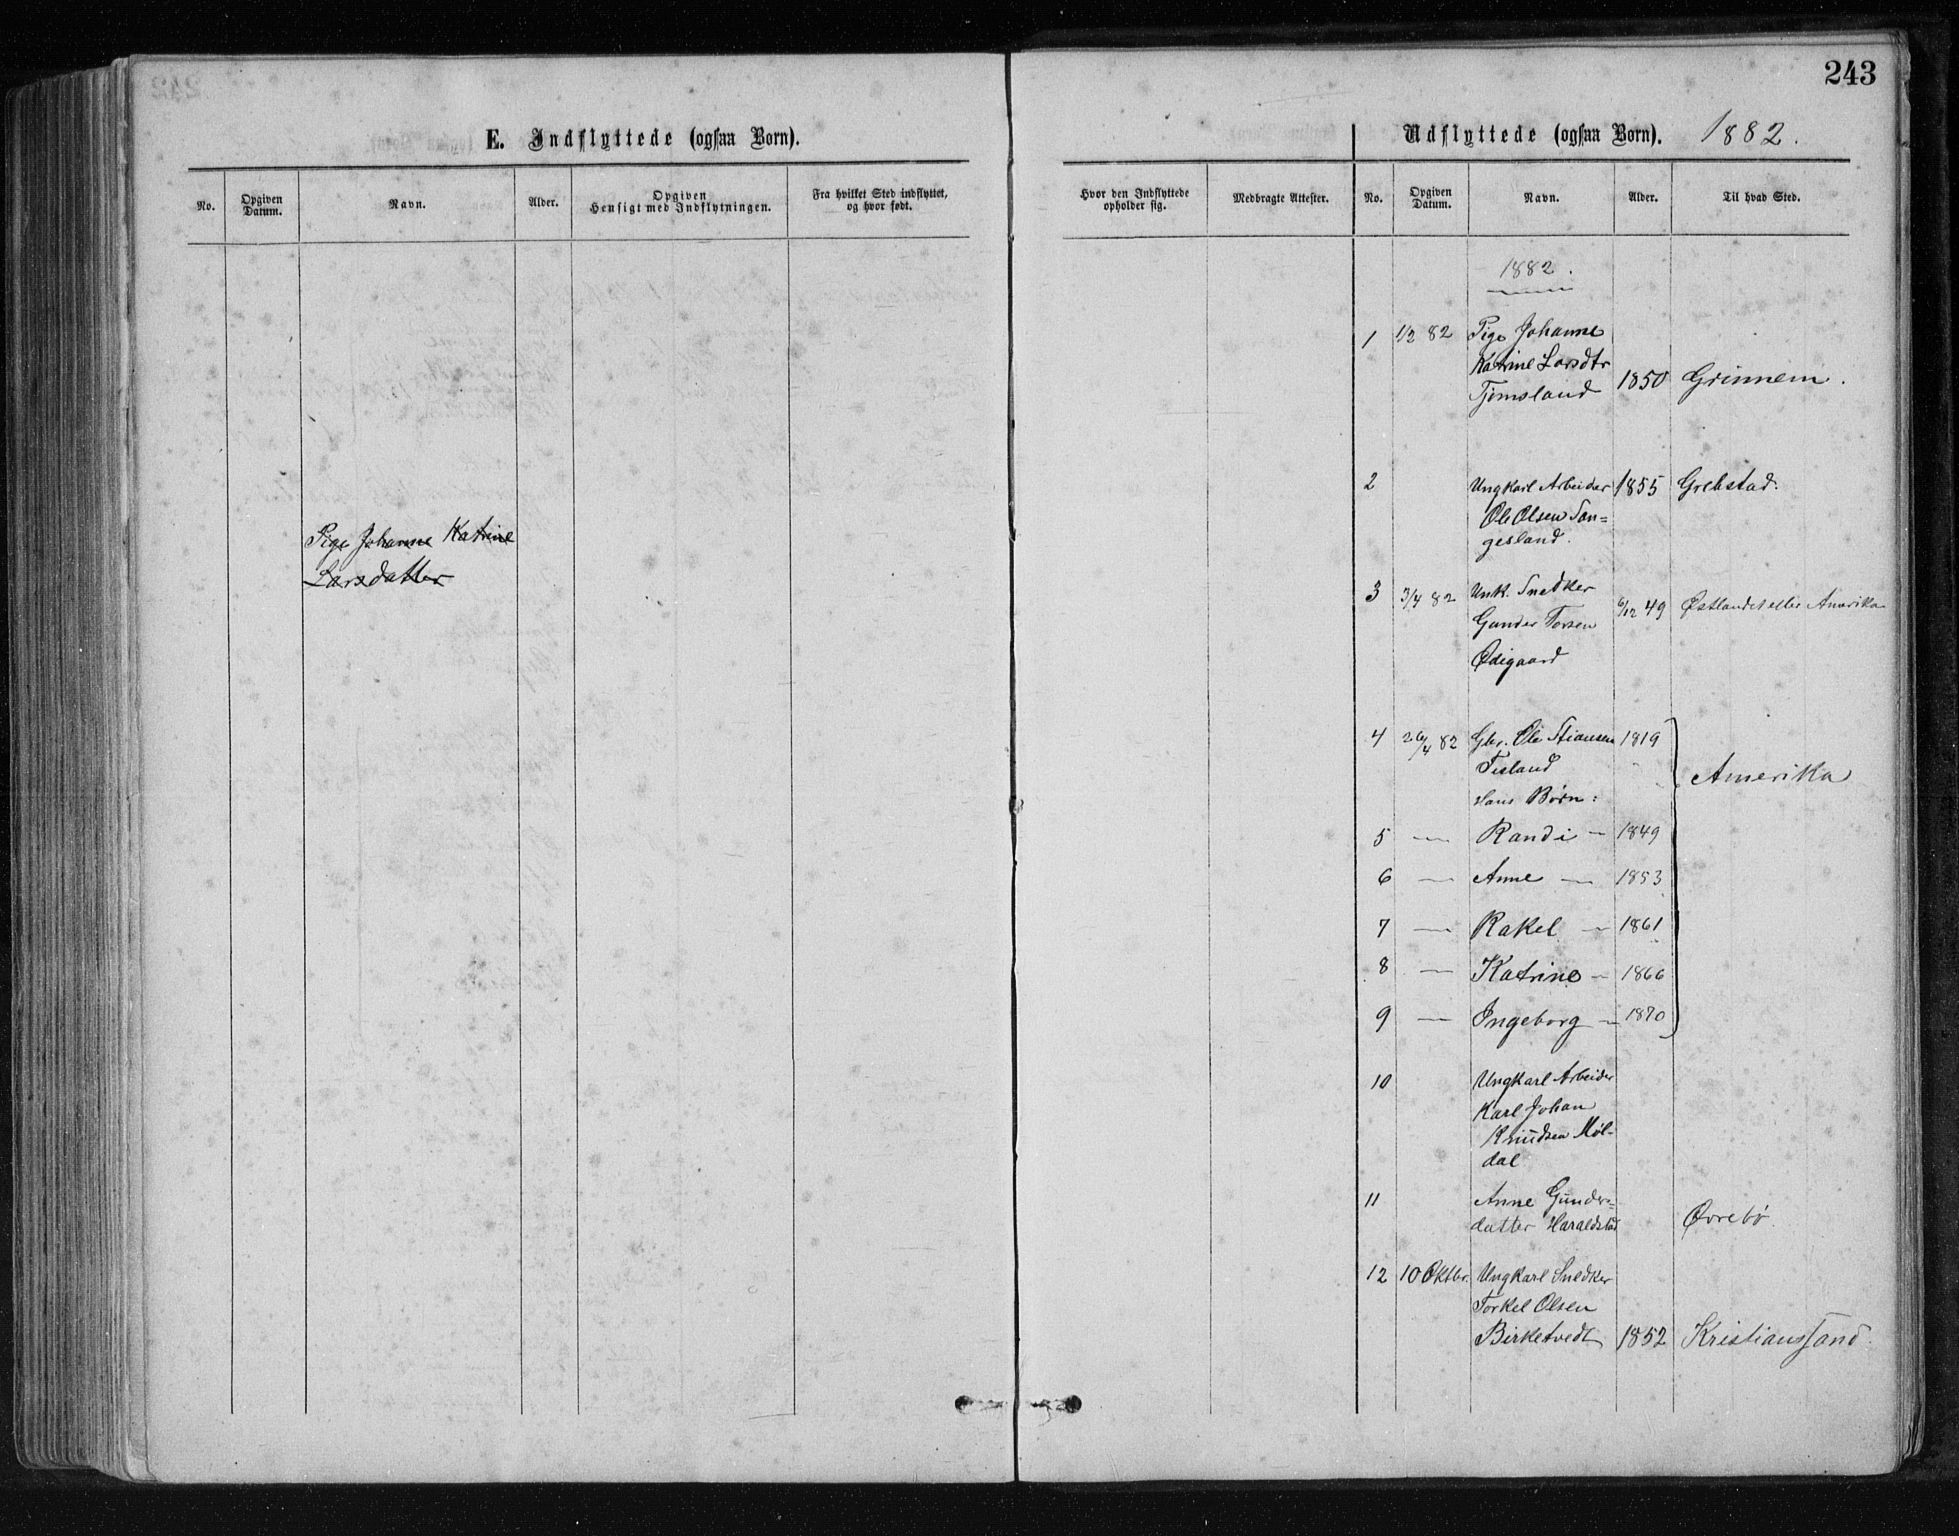 243
E. Indflyttede (ogsaa Børn).
No.
Opgiven Datum.
Navn.
Alder.
Opgiven Hensigt med Indflytningen.
Fra hvilket Sted indflyttet, og hvor født.
Pige Johanne Katrine
Larsdatter
Udflyttede (ogsaa Børn). 1882.
Hvor den Indflyttede opholder sig.
Medbragte Attester.
No.
Opgiven Datum.
Navn.
Alder.
Til hvad Sted.
1882.
1 1/2 82 Pige Johanne
Katrine Larsdtr
Tjomsland 1850
2 Ungkarl Arbeider 1855 Grebstad.
Ole Olsen San=
gesland.
3 3/4 82 Unk. Snedker
Gunder Torsen 6/12 49 Østlandet eller Amerika
Ødegaard
4 26/4 82 Gbr. Ole Stiansen 1819
Tisland Amerika
Hans Børn:
5 — Randi — 1849
6 — Anne — 1853
7 — Rakel — 1861
8 — Katrine — 1866
9 — Ingeborg — 1870
10 Ungkarl Arbeider
Karl Johan
Knudsen Møl-
dal
11 Anne Gunders-
datter Haraldstad Øvrebø.
12 10 Oktbr. Ungkarl Snedker
Torkel Olsen
Birketvedt 1852 Kristianssand.